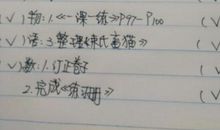 (√)物:1.《一课一练》P97-P100
(√)语:3.整理《猫》
(√)数:1.订正卷子
2.完成《练习册》